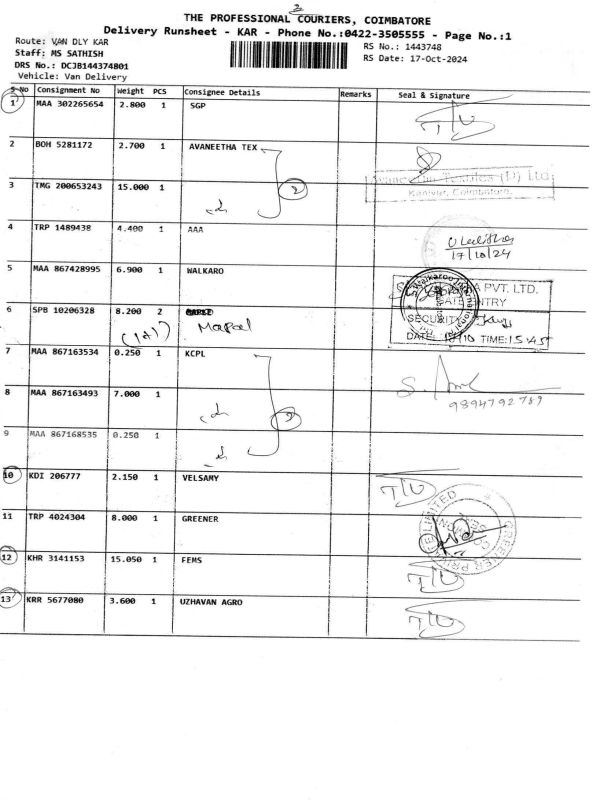 THE PROFESSIONAL COURIERS, COIMBATORE
Delivery Runsheet - KAR - Phone No.:0422-3505555 - Page No.:1
Route: VAN DLY KAR
RS No.: 1443748
Staff: MS SATHISH
RS Date: 17-Oct-2024
DRS No.: DCJB144374801
Vehicle: Van Delivery
S No Consignment No Weight PCS Consignee Details Remarks Seal & Signature
1 MAA 302265654 2.800 1 SGP
2 BOH 5281172 2.700 1 AVANEETHA TEX
3 TMG 200653243 15.000 1
Kaniyur, Coimbatore.
4 TRP 1489438 4.400 1 AAA
17/10/24
5 MAA 867428995 6.900 1 WALKARO
PVT. LTD.
6 SPB 10206328 8.200 2
(1+1) Mapal
SECURITY
DATE: TIME: 15:45
7 MAA 867163534 0.250 1 KCPL
8 MAA 867163493 7.000 1
9894792789
9 MAA 867168535 0.250 1
10 KDI 206777 2.150 1 VELSAMY
11 TRP 4024304 8.000 1 GREENER
12 KHR 3141153 15.050 1 FEMS
13 KRR 5677080 3.600 1 UZHAVAN AGRO